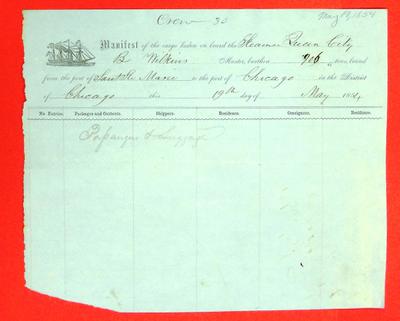 Crew 30
May 19, 1854
Manifest of the cargo laden on board the Steamer Queen City
B Wilkins Master, burthen 906 tons, bound
from the port of Sault Ste Marie to the port of Chicago in the District
of Chicago this 19th day of May 1854
No. Entries. Packages and Contents. Shippers. Residence. Consignees. Residence.
Passengers & Luggage